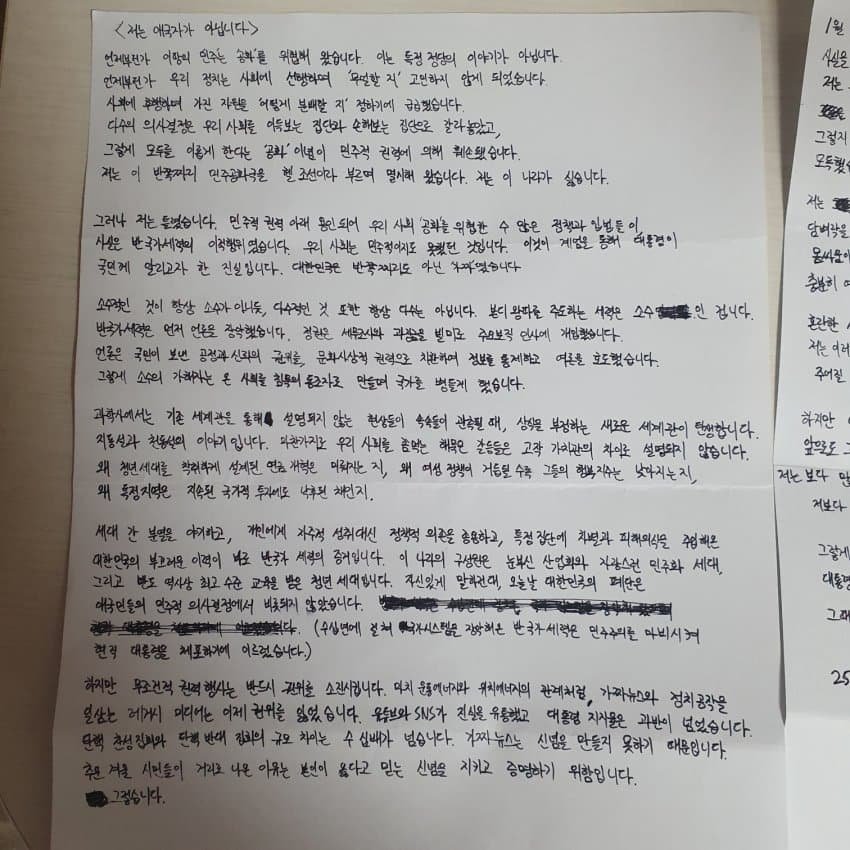 <저는 애국자가 아닙니다>
언제부턴가 이땅의 민주는 '공화'를 위협해 왔습니다. 이는 특정 정당의 이야기가 아닙니다.
언제부턴가 우리 정치는 사회에 선행하며 '무얼할 지' 고민하지 않게 되었습니다.
사회에 후행하며 가진 자원을 '어떻게 분배할 지' 정하기에 급급했습니다.
다수의 의사결정은 우리 사회를 이득보는 집단과 손해보는 집단으로 갈라놓았고,
그렇게 모두를 이롭게 한다는 '공화' 이념이 민주적 권력에 의해 훼손됐습니다.
저는 이 반쪽짜리 민주공화국을 헬조선이라 부르며 멸시해 왔습니다. 저는 이 나라가 싫습니다.
그러나 저는 틀렸습니다. 민주적 권력 아래 용인되어 우리 사회 '공화'를 위협한 수 많은 정책과 입법들이,
사실은 반국가세력의 이적행위였습니다. 우리 사회는 민주적이지도 못했던 것입니다. 이것이 계엄을 통해 대통령이
국민께 알리고자 한 진실입니다. 대한민국은 반쪽짜리도 아닌 였습니다
소수적인 것이 항상 소수가 아니듯, 다수적인 것 또한 항상 다수는 아닙니다. 본디 왕따를 주도하는 세력은 소수 인 겁니다.
반국가세력은 먼저 언론을 장악했습니다. 정권은 세무조사와 과징금을 빌미로 주요보직 인사에 개입했습니다.
언론은 국민이 보낸 공정과 신뢰의 권위를, 문화사상적 권력으로 치환하여 정보를 통제하고 여론을 호도했습니다.
그렇게 소수의 가해자는 온 사회를 침묵의 동조자로 만들며 국가를 병들게 했습니다.
과학사에서는 기존 세계관을 통해 설명되지 않는 현상들이 속속들이 관측될 때, 상식을 부정하는 새로운 세계관이 탄생합니다.
지동설과 천동설의 이야기입니다. 마찬가지로 우리 사회를 좀먹는 해묵은 갈등들은 고작 가치관의 차이로 설명되지 않습니다.
왜 청년세대를 착취하게 설계된 연금 개혁은 미뤄지는 지, 왜 여성 정책이 거듭될 수록 그들의 행복지수는 낮아지는지,
왜 특정지역은 지속된 국가적 투자에도 낙후된 채인지.
세대 간 분열을 야기하고, 개인에게 자주적 성취대신 정책적 의존을 종용하고, 특정 집단에 차별과 피해의식을 주입해온
대한민국의 부끄러운 이력이 바로 반국가 세력의 증거입니다. 이 나라의 구성원은 눈부신 산업화와 자랑스런 민주화 세대,
그리고 반도 역사상 최고 수준 교육을 받은 청년 세대입니다. 자신있게 말하건대, 오늘날 대한민국의 폐단은
애국민들의 민주적 의사결정에서 비롯되지 않았습니다.
(수십년에 걸쳐 국가시스템을 장악해온 반국가세력은 민주주의를 마비시켜
현직 대통령을 체포하기에 이르렀습니다.)
하지만 무조건적 권력행사는 반드시 권위를 소진시킵니다. 마치 운동에너지와 위치에너지의 관계처럼, 가짜뉴스와 정치공작을
일삼는 레거시 미디어는 이제 권위를 잃었습니다. 유튜브와 SNS가 진실을 유통했고 대통령 지지율은 과반이 넘었습니다.
탄핵 찬성집회와 탄핵 반대 집회의 규모 차이는 수 십배가 넘습니다. 가짜뉴스는 신념을 만들지 못하기 때문입니다.
추운 겨울 시민들이 거리로 나온 이유는 본인이 옳다고 믿는 신념을 지키고 증명하기 위함입니다.
그렇습니다.
1월
사실을
저는
그렇지
모독했습
저는
담벼락을
몸싸움이
충분히 여
혼란한 시
저는 이러
주어질
하지만 이
앞으로도 그
저는 보다 많
저보다
그렇게
대통령
그때
25